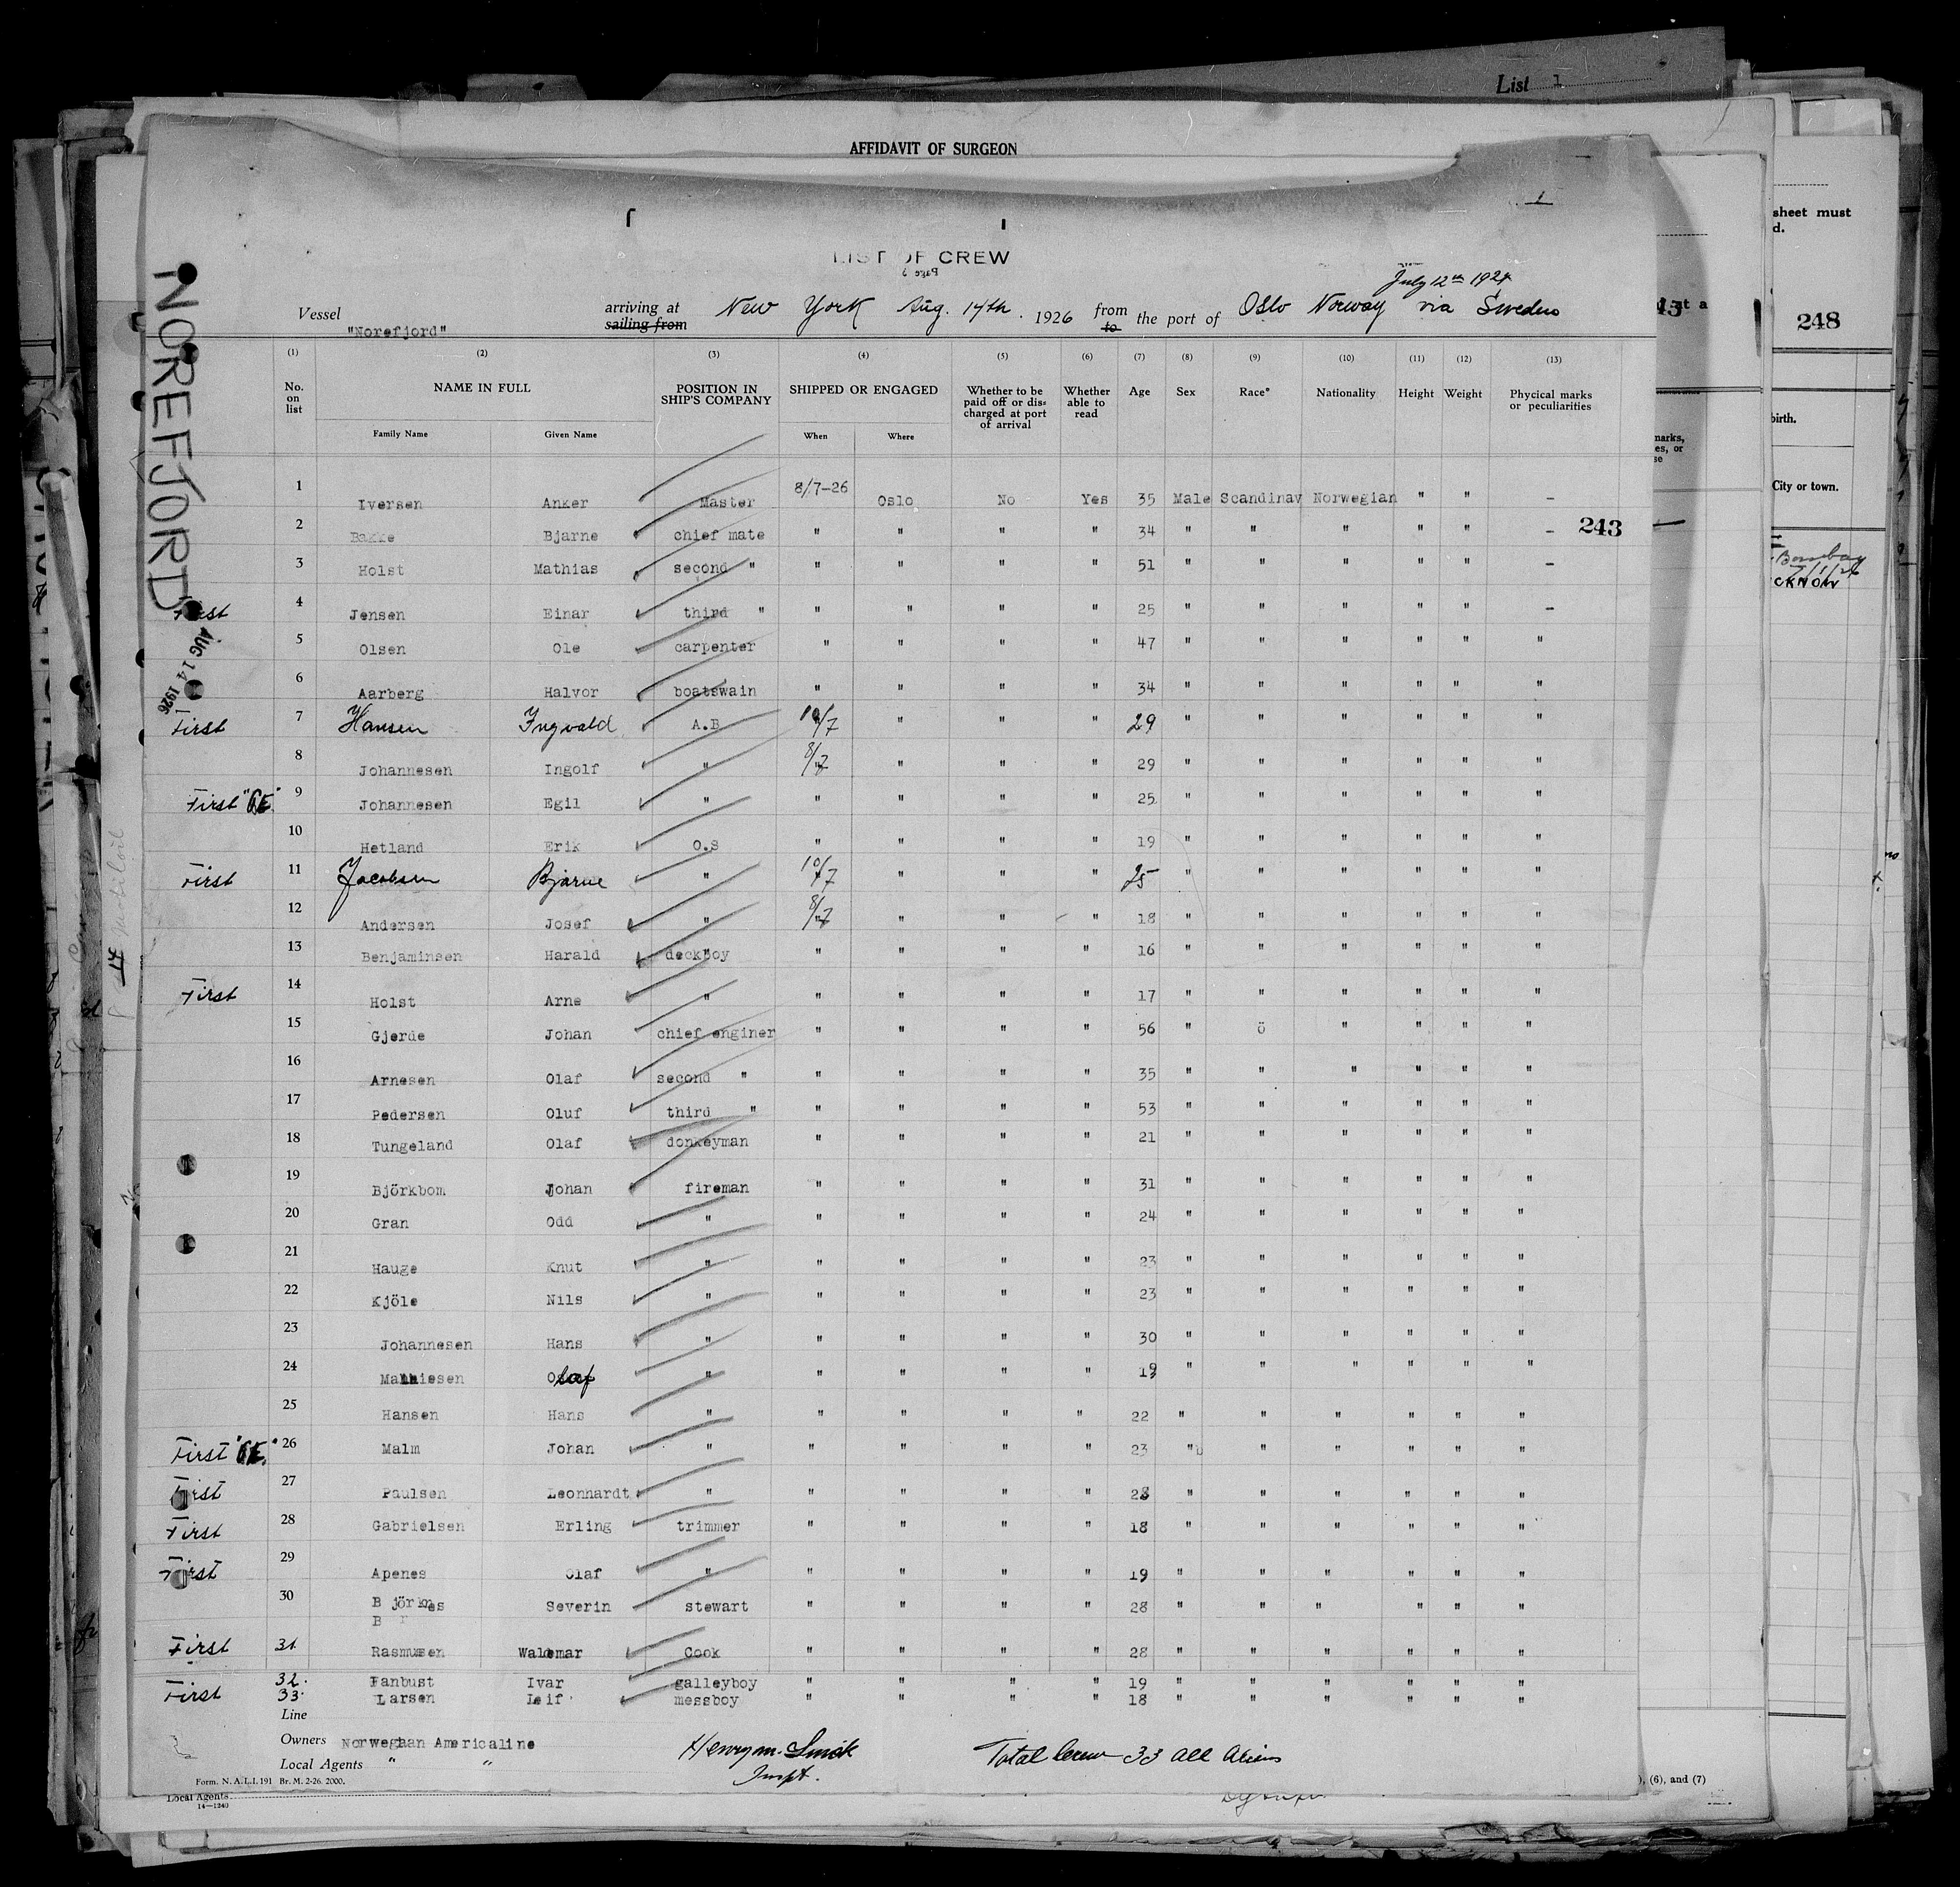 List 1
AFFIDAVIT OF SURGEON
sheet must
d.
1
LIST OF CREW
Page
July 12th 192
Vessel "Norefjord" arriving at New York Aug. 14th. 1926 from the port of Oslo Norway via Sweden
sailing from to
NOREFJORD
AUG 14 1926
248
(1) (2) (3) (4) (5) (6) (7) (8) (9) (10) (11) (12) (13)
No. on list NAME IN FULL POSITION IN SHIP'S COMPANY SHIPPED OR ENGAGED Whether to be paid off or discharged at port of arrival Whether able to read Age Sex Race* Nationality Height Weight Phycical marks or peculiarities
Family Name Given Name When Where
birth.
City or town.
1 Iversen Anker Master 8/7-26 Oslo No Yes 35 Male Scandinav Norwegian " " -
2 Bakke Bjarne chief mate " " " " 34 " " " " " - 243
3 Holst Mathias second " " " " " 51 " " " " " -
First 4 Jensen Einar third " " " " " 25 " " " " " -
5 Olsen Ole carpenter " " " " 47 " " " " " "
6 Aarberg Halvor boatswain " " " " 34 " " " " " "
First 7 Hansen Ingvald A.B 10/7 " " " 29 " " " " " "
8 Johannesen Ingolf " 8/7 " " " 29 " " " " " "
First 9 Johannesen Egil " " " " " 25 " " " " " "
10 Hetland Erik O.S " " " " 19 " " " " " "
First 11 Jacobsen Bjarne " 10/7 " " " 25 " " " " " "
12 Andersen Josef " 8/7 " " " 18 " " " " " "
13 Benjaminsen Harald deckboy " " " " 16 " " " " " "
First 14 Holst Arne " " " " " 17 " " " " " "
15 Gjerde Johan chief enginer " " " " 56 " ö " " " "
16 Arnesen Olaf second " " " " " 35 " " " " " "
17 Pedersen Oluf third " " " " " 53 " " " " " "
18 Tungeland Olaf donkeyman " " " " 21 " " " " " "
19 Björkbom Johan fireman " " " " 31 " " " " " "
20 Gran Odd " " " " " 24 " " " " " "
21 Hauge Knut " " " " " 23 " " " " " "
22 Kjöle Nils " " " " " 23 " " " " " "
23 Johannesen Hans " " " " " 30 " " " " " "
24 Mathiesen Olaf " " " " " 19 " " " " " "
25 Hansen Hans " " " " " 22 " " " " " "
First 26 Malm Johan " " " " " 23 " " " " " "
First 27 Paulsen Leonhardt " " " " " 28 " " " " " "
First 28 Gabrielsen Erling trimmer " " " " 18 " " " " " "
First 29 Apenes Olaf " " " " " 19 " " " " " "
30 Björknes Severin stewart " " " " 28 " " " " " "
First 31 Rasmussen Waldemar Cook " " " " 28 " " " " " "
32. Fanbust Ivar galleyboy " " " " 19 " " " " " "
First 33. Larsen Leif messboy " " " " 18 " " " " " "
Line
Owners Norweghan Americaline
Local Agents " "
Henry M. Smick
Inspt.
Total Crew 33 all Aliens
Form. N. A. L. I. 191 Br. M. 2-26. 2000.
Local Agents
14—1240
), (6), and (7)